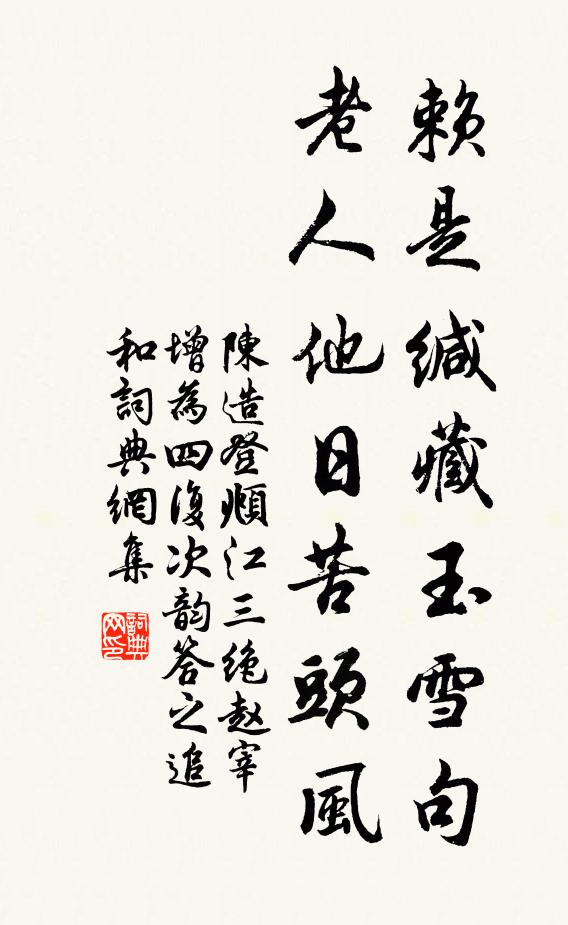 賴是緘藏玉雪句
老人他日苦頭風
陳造登順江三絶趙宰
增為四復次韵答之追
和詞典網集
詞典网印